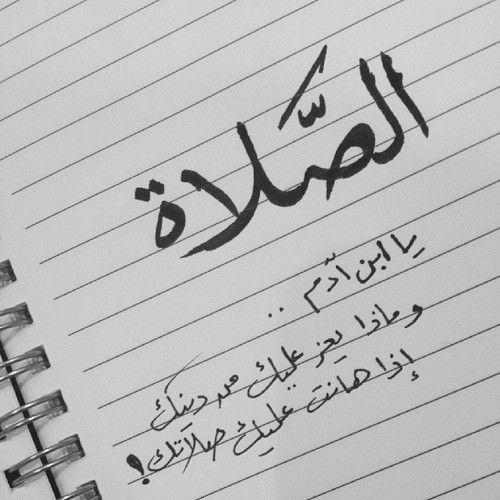 الصَّلاة
يا ابن آدم ..
وماذا يعز عليك من دينك
إذا هانت عليك صلاتك!